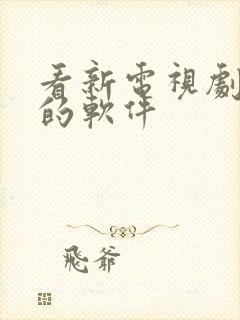 看新電視劇
的軟件
飛爺